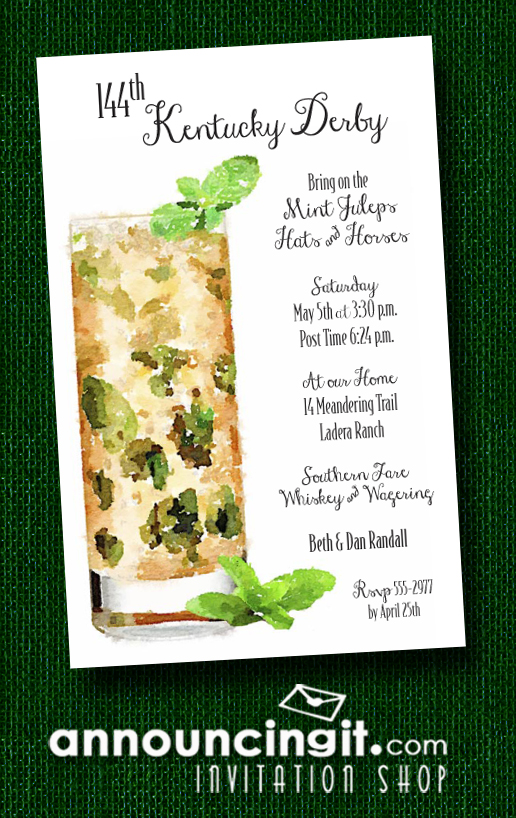 144th
Kentucky Derby
Bring on the
Mint Juleps
Hats and Horses
Saturday
May 5th at 3:30 p.m.
Post Time 6:24 p.m.
At our Home
14 Meandering Trail
Ladera Ranch
Southern Fare
Whiskey and Wagering
Beth & Dan Randall
Rsvp 555-2977
by April 25th
announcingit.com
INVITATION SHOP